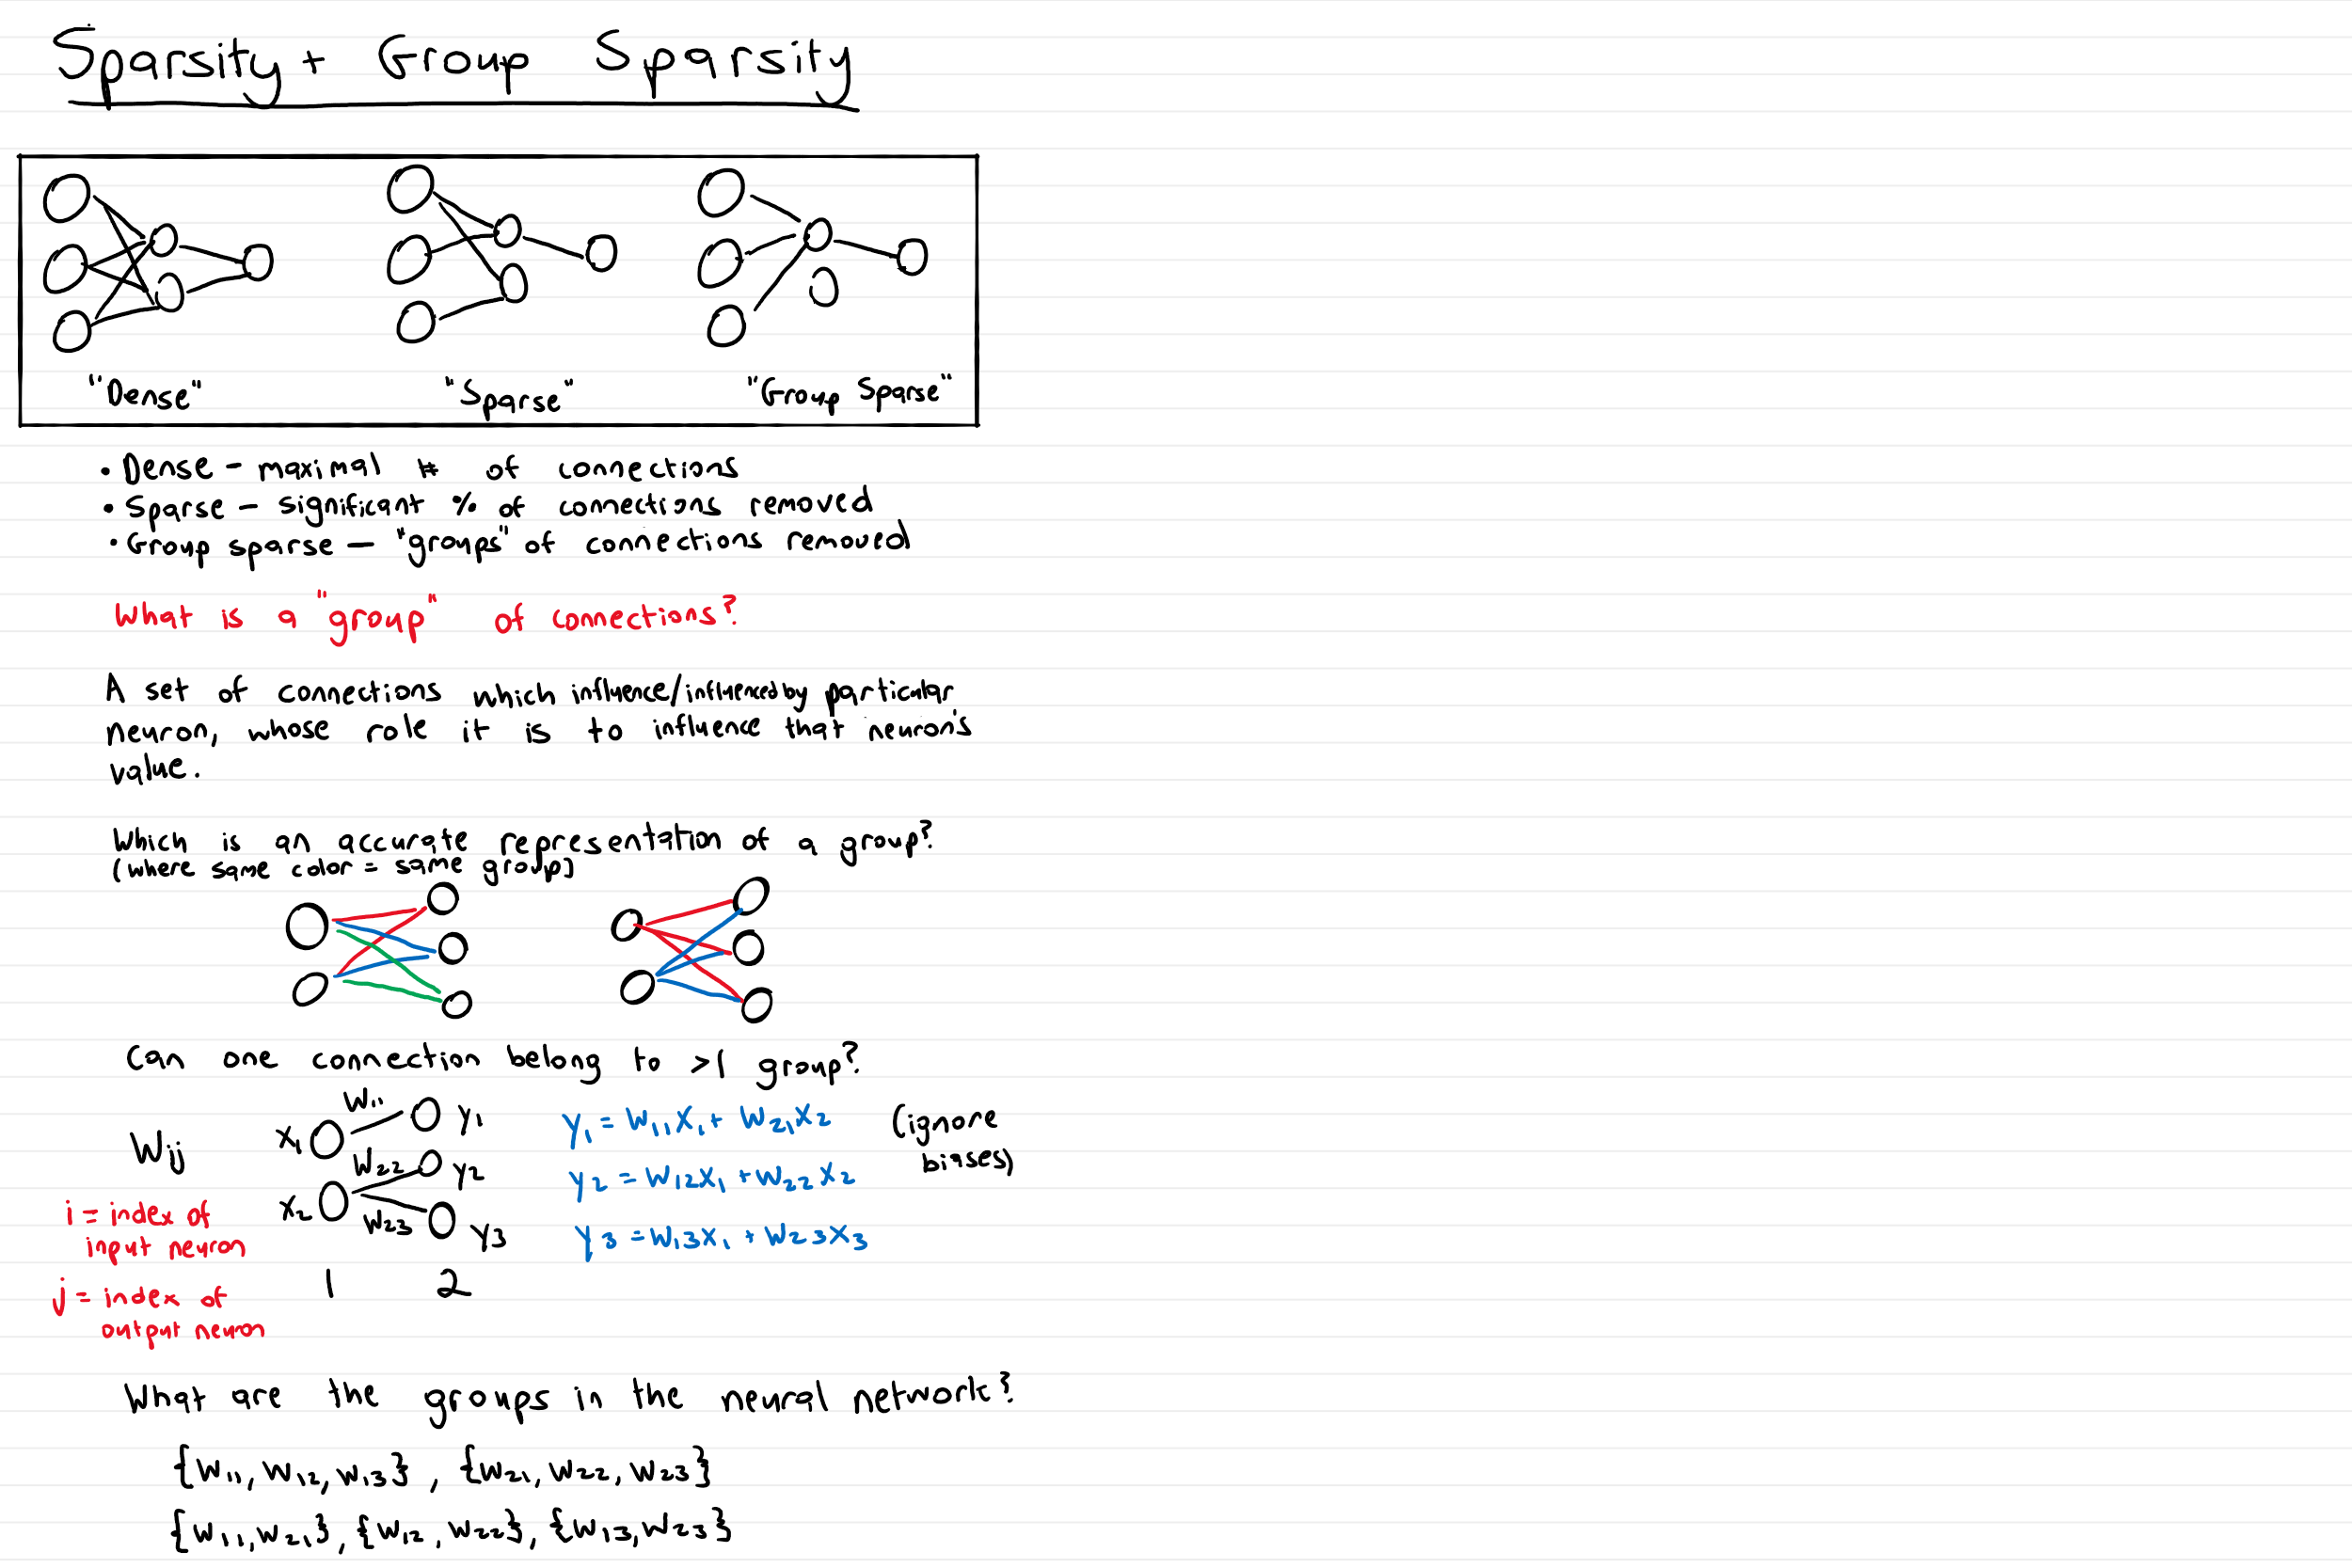 Sparsity + Group Sparsity
"Dense" "Sparse" "Group Sparse"
• Dense - maximal # of connections
• Sparse - significant % of connections removed
• Group sparse - "groups" of connections removed
What is a "group" of connections?
A set of connections which influence/influenced by particular
neuron, whose role it is to influence that neuron's
value.
Which is an accurate representation of a group?
(where same color = same group)
Can one connection belong to >1 group?
Wij
i = index of
input neuron
j = index of
output neuron
x1 w11 y1
w22 y2
x2 w23 y3
1 2
y1 = w11x1 + w21x2
y2 = w12x1 + w22x2
y3 = w13x1 + w23x3
(ignore
biases)
What are the groups in the neural network?
{w11, w12, w13}, {w21, w22, w23}
{w11, w21}, {w12, w22}, {w13, w23}